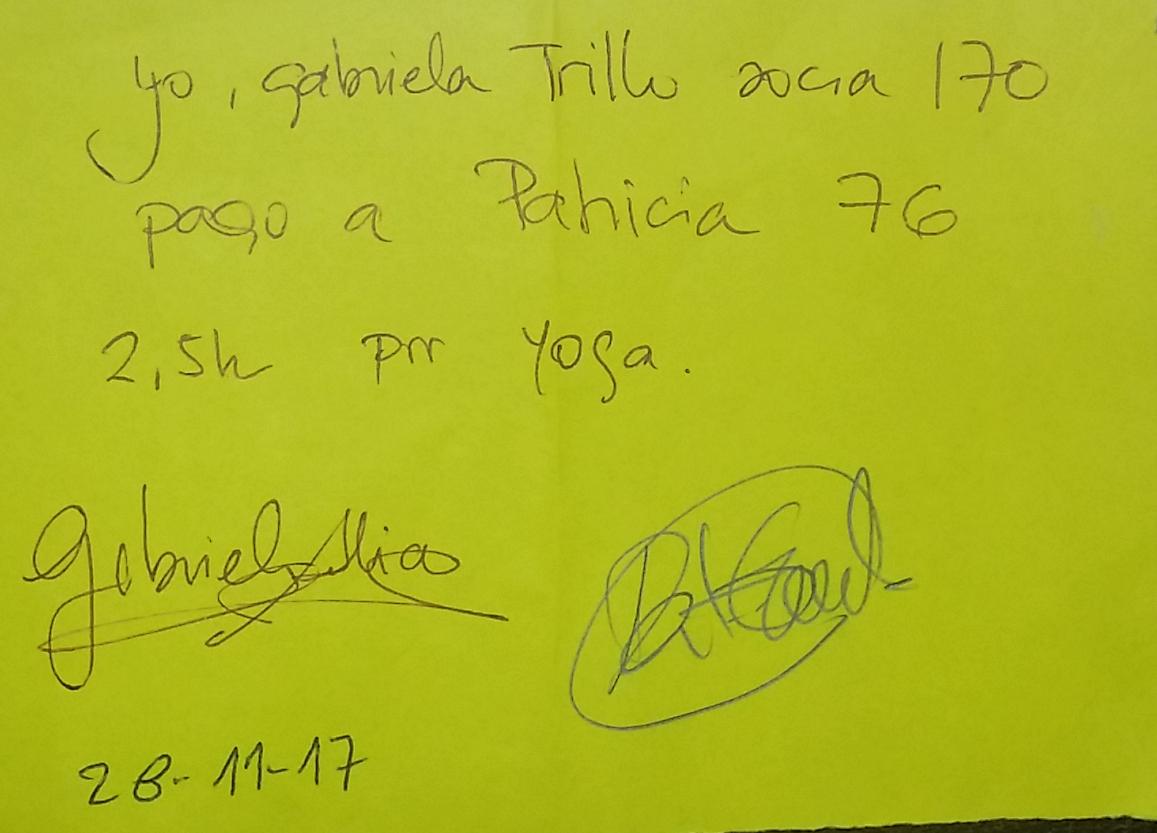 yo, gabriela Trillo socia 170
pago a Patricia 76
2,5h por yoga.
Gabriela
28-11-17